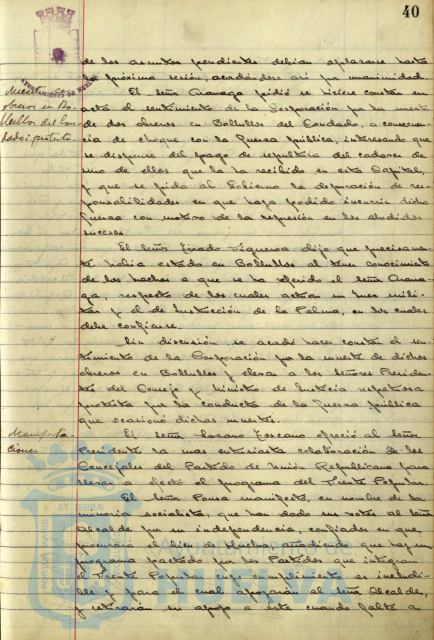 40
de los asuntos pendientes debian aplazarse hasta
la próxima sesión, acordándose así por unanimidad.
Muerte de
obreros en Bo-
llullos del Con-
dado: protesta.
El señor Aranaga pidió se hiciese constar en
acta el sentimiento de la Corporación por la muerte
de dos obreros en Bollullos del Condado, a consecuen-
cia de choque con la fuerza pública, interesando que
se dispense del pago de sepultura del cadaver de
uno de ellos que la ha recibido en esta Capital,
y que se pida al Gobierno la depuración de res-
ponsabilidades en que haya podido incurrir dicha
fuerza con motivo de la represión en los aludidos
sucesos.
El señor Tirado Figueroa dijo que precisamen-
te habia estado en Bollullos al tener conocimiento
de los hechos a que se ha referido el señor Arana-
ga, respecto de los cuales actúan un Juez mili-
tar y el de Instrucción de la Palma, en los cuales
debe confiarse.
Sin discusión se acordó hacer constar el sen-
timiento de la Corporación por la muerte de dichos
obreros en Bollullos y elevar a los señores Presiden-
te del Consejo y Ministro de Justicia respetuosa
protesta por la conducta de la fuerza pública
que ocasionó dichas muertes.
Manifesta-
ciones
El señor Lozano Toscano ofreció al señor
Presidente la mas entusiasta colaboración de los
Concejales del Partido de Unión Republicana para
llevar a efecto el programa del Frente Popular.
El señor Ponsa manifestó, en nombre de la
minoria socialista, que han dado sus votos al señor
Alcalde por su independencia, confiados en que,
procurará el bien de Huelva, añadiendo que hay un
programa pactado por los Partidos que integran
el Frente Popular cuyo cumplimiento es ineludi-
ble y para el cual apoyarán al señor Alcalde,
y retirarán su apoyo a este cuando falte a
Ayuntamiento de
HUELVA